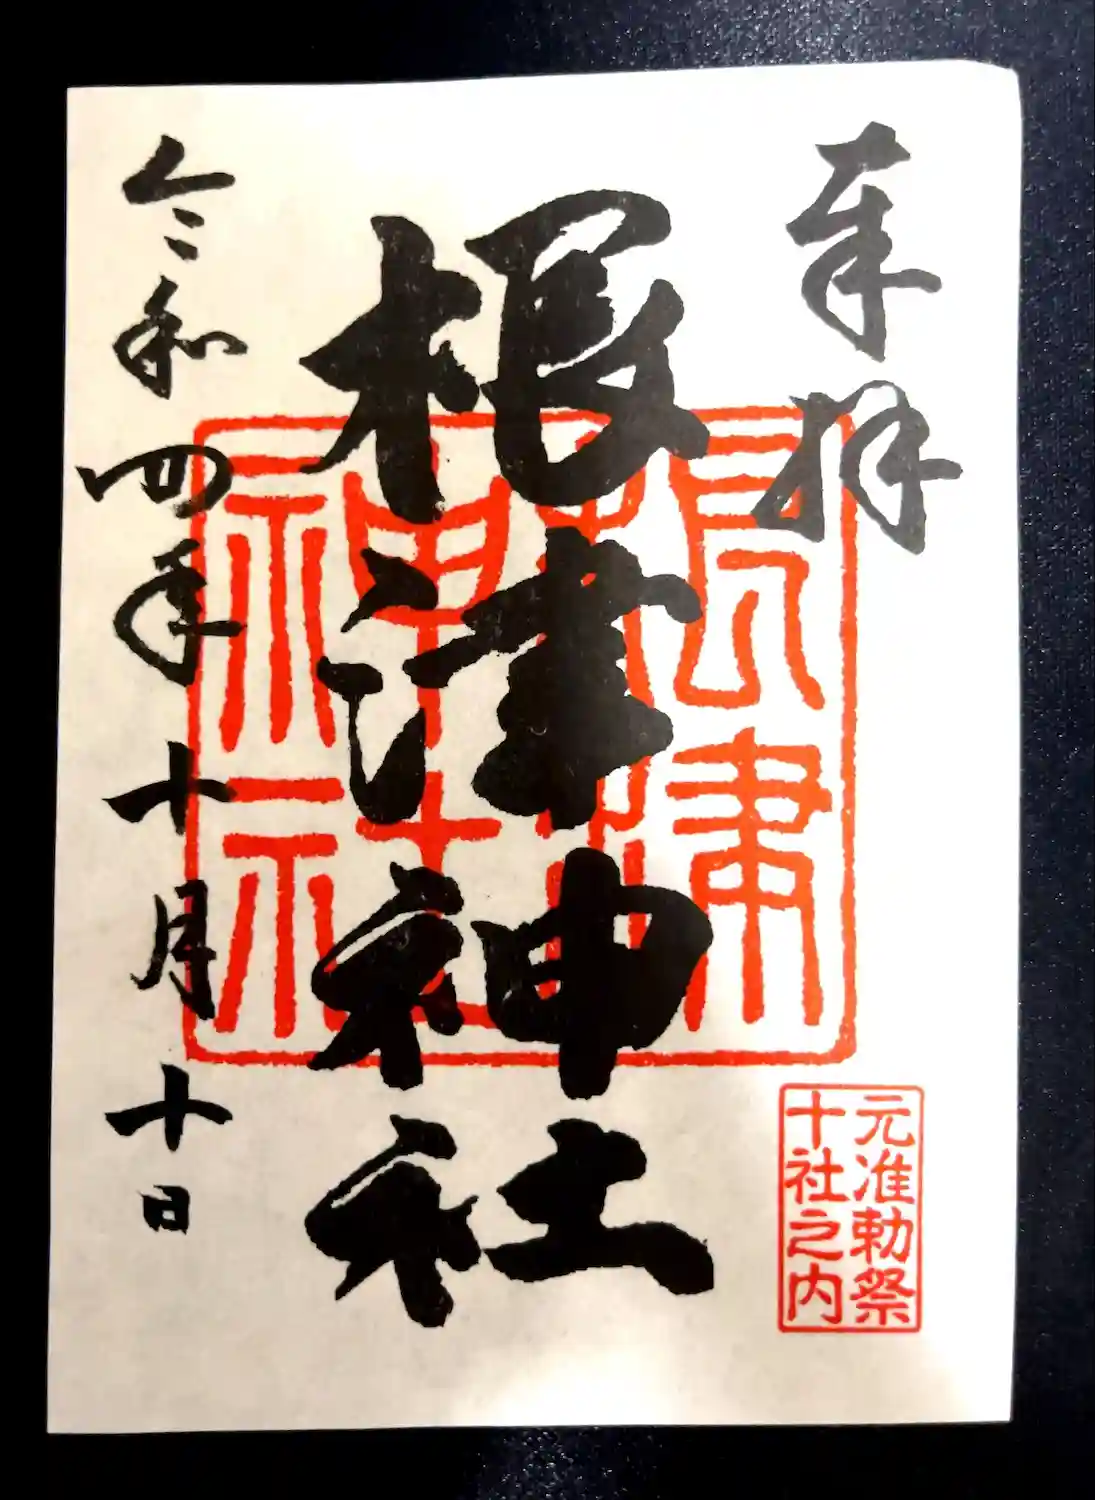 奉拝
根津神社
根津神社
元准勅祭
十社之内
令和四年十月十日